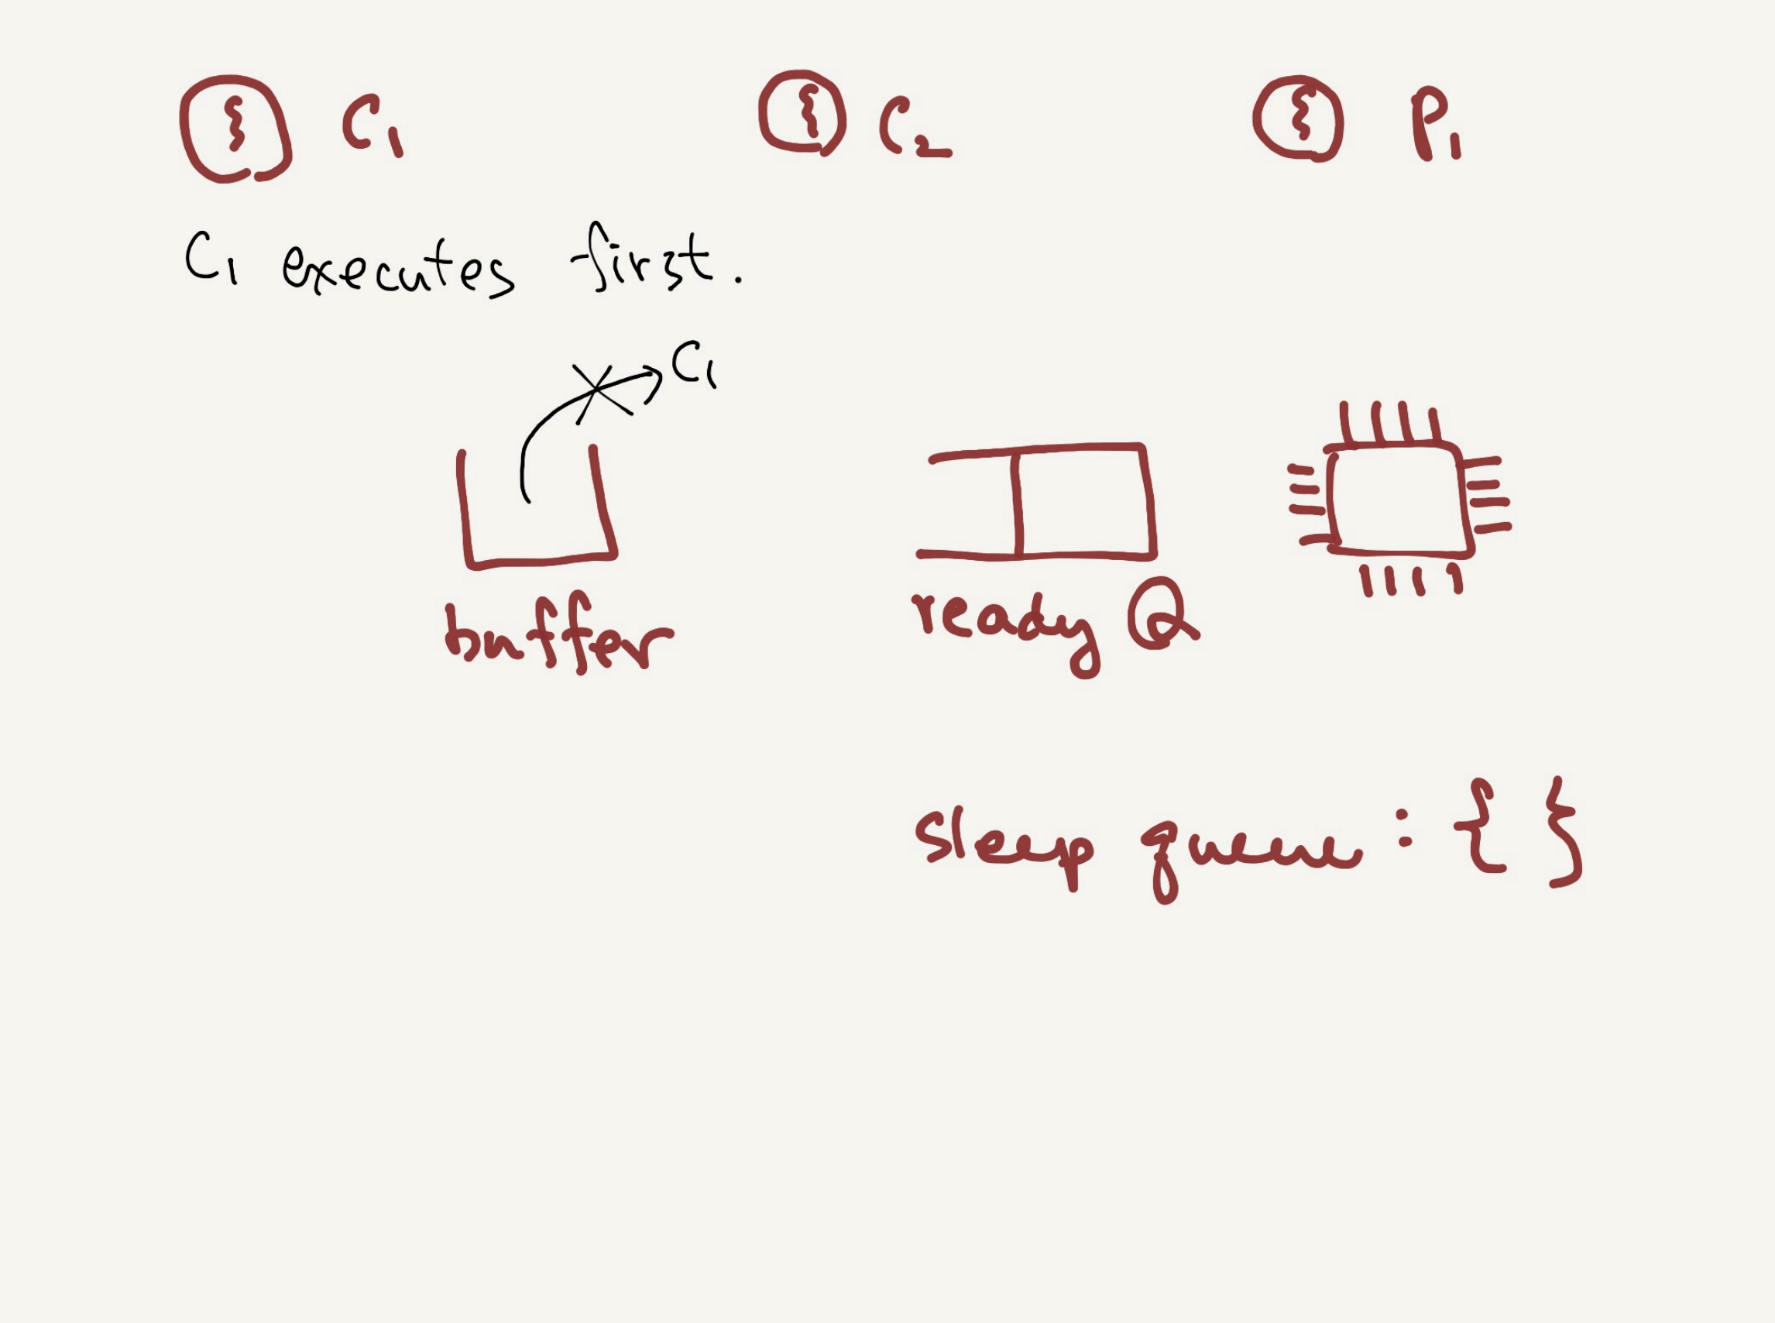 C1 C2 P1
C1 executes first.
C1
buffer
ready Q
sleep queue : { }